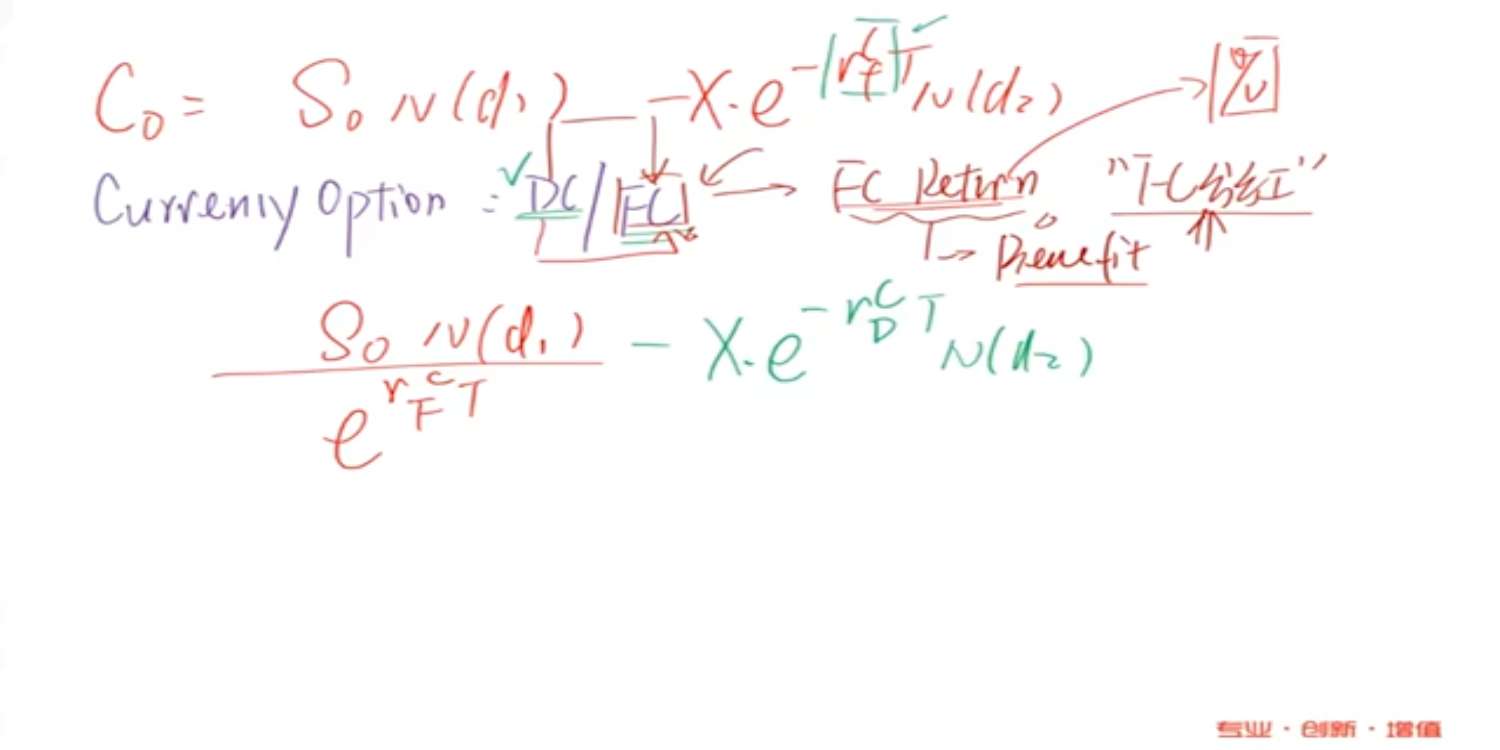 C₀ = S₀ N(d₁) - X·e^{-r_f T} N(d₂) %
Currenly Option : DC/FC → FC Return "FC分红"
→ Benefit
S₀ N(d₁) / e^{r_F^C T} - X·e^{-r_D^C T} N(d₂)
专业·创新·增值